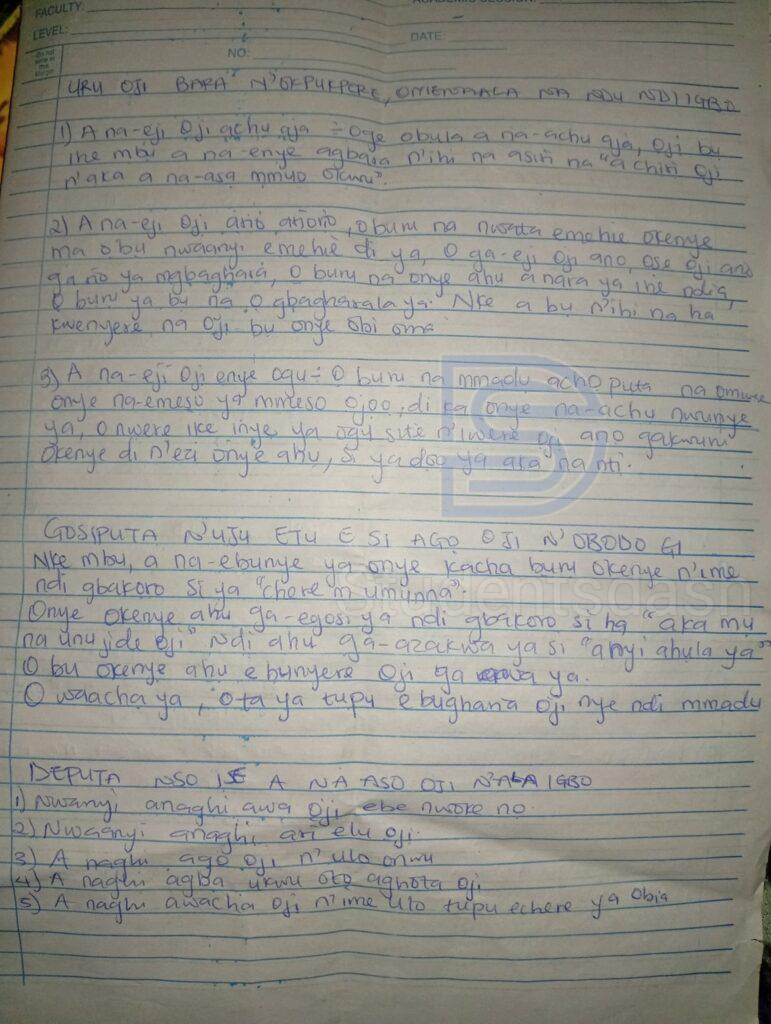 FACULTY:
ACADEMIC SESSION:
LEVEL:
DATE:
NO:
URU OJI BARA N'OKPUKPERE, OMENAALA NA NDU NDI IGBO
1) A na-eji Oji achu aja ÷ Oge obula a na-achu aja, Oji bu
ihe mbu a na-enye agbara n'ihi na asiri na "a chiri Oji
n'aka a na-asa mmuo okwu".
2) A na-eji Oji ario ariorio, o buru na nwata emehie okenye
ma o bu nwaanyi emehie di ya, O ga-eji Oji ano, ose oji ano
ga rio ya mgbaghara, O buru na onye ahu anara ya ihe ndia,
O buru ya bu na O gbagharala ya. Nke a bu n'ihi na ha
kwenyere na Oji bu onye obi oma
3) A na-eji Oji enye ogu ÷ O buru na mmadu achoputa na
onye na-emeso ya mmeso ojoo, di ka onye na-achu nwunye
ya, O nwere ike inye ya ogu site n'iwere oji ano gakwuru
Okenye di n'ezi onye ahu, si ya doo ya aka na nti.
GOSIPUTA N'UJU ETU E SI AGO OJI N'OBODO GI
Nke mbu, a na-ebunye ya onye kacha buru okenye n'ime
ndi gbakoro si ya "chere m umunna".
Onye okenye ahu ga-egosi ya ndi gbakoro si ha "aka mu
na unu jide oji" Ndi ahu ga-azakwa ya si "anyi ahula ya"
O bu okenye ahu e bunyere Oji ga ya.
O waacha ya, o ta ya tupu e bughana Oji nye ndi mmadu
Studentsdash
DEPUTA NSO ISE A NA ASO OJI N'ALA IGBO
1) Nwanyi anaghi awa Oji ebe nwoke no
2) Nwaanyi anaghi ari elu Oji.
3) A naghi ago Oji n'ulo onwu
4) A naghi agba ukwu oto aghota Oji
5) A naghi awacha Oji n'ime ulo tupu echere ya Obia